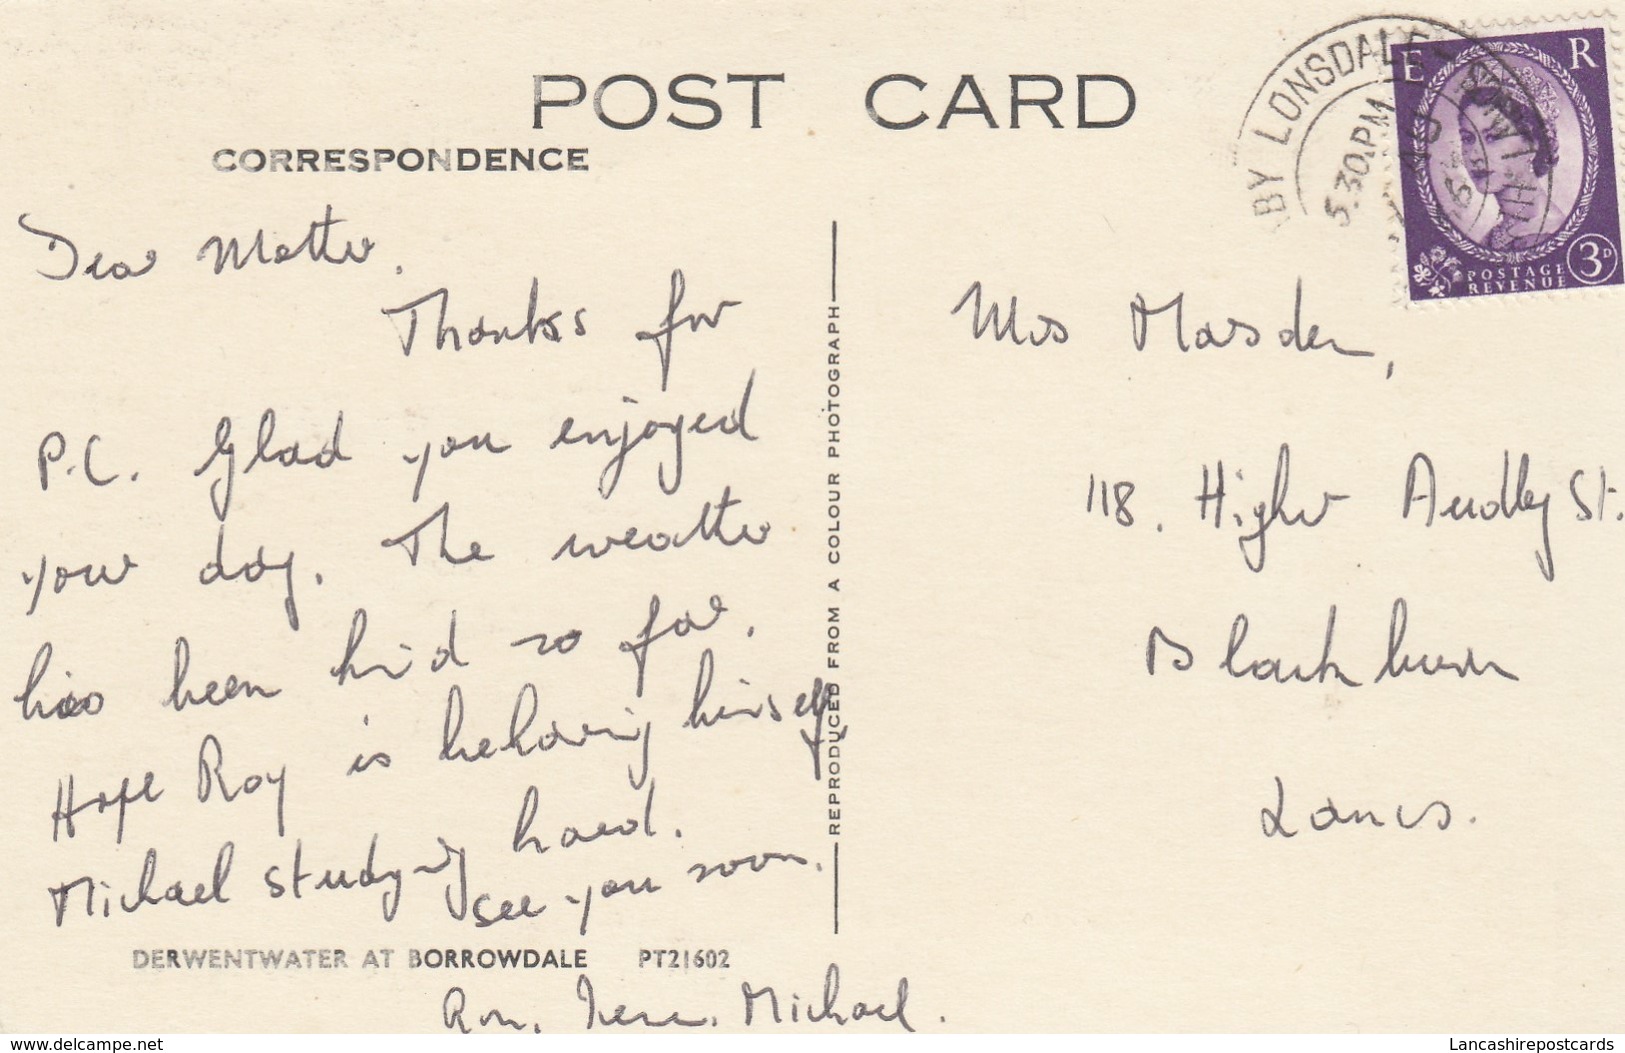 POST CARD
CORRESPONDENCE
Dear Mother.
Thanks for
P.C. Glad you enjoyed
your day. The weather
has been kind so far.
Hope Roy is behaving himself,
Michael studying hard.
See you soon.
DERWENTWATER AT BORROWDALE PT21602
Ron. Irene. Michael.
REPRODUCED FROM A COLOUR PHOTOGRAPH
BY LONSDALE
5.30PM
E R
3D
POSTAGE
REVENUE
Mrs Marsden,
118. Higher Audley St.
Blackburn
Lancs.
www.delcampe.net
Lancashirepostcards